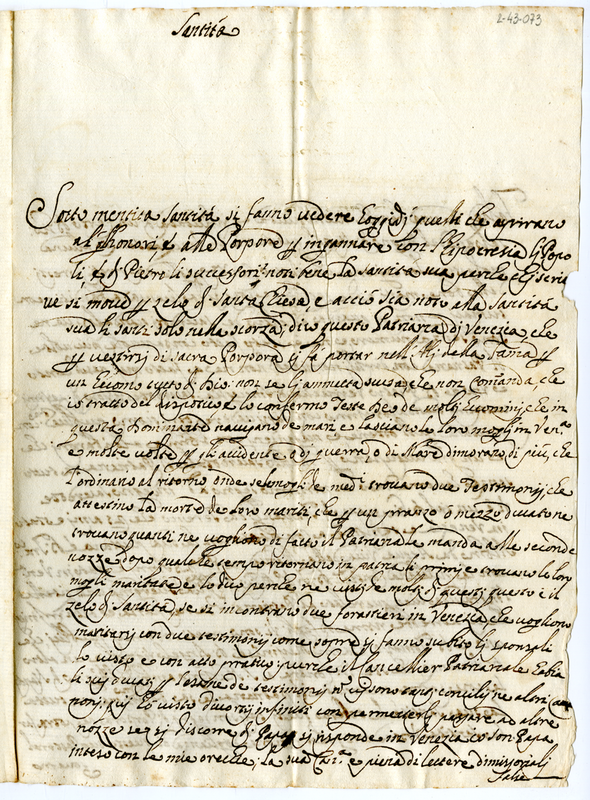 2-43-073
Santità
Sotto mentita santità si fanno vedere hoggidj quelli che aspirano
al honori, e alla Porpora p ingannare con l'hipocresia li Popo
li, e di Pietro li successori: non bene la santità sua perche chi scri
ve si move p zelo di Santa Chiesa, e acciò sia noto alla Santità
sua li santi solo nella scorza; dico questo Patriarca di Venezia, che
p vestirsi di sacra Porpora si fa portar nell' della Fama p
un huomo tutto di Dio: non se li ammetta scusa, che non comanda, che
è tratto del dispotico, e lo confermo. Teste he de molti huomini che in
questa Dominante navigano de mari e lasciano le loro mogli in Ven.a
e molte volte p accidente di guerra, o di Mare dimorano di più, che
l'ordinario al ritorno onde le mogli de med.i trovano due Testimonij che
attestino la morte de loro mariti, che p un pranzo o mezzo ducatone
trovano quanti ne vogliono di fatto il Patriarca le manda alle seconde
nozze, dopo qualche tempo ritornano in patria li primi e trovano le loro
mogli maritate e lo dico perche ne visti molti di questi questo è il
zelo di Santità, se si incontrano due forastieri in Venezia che vogliono
maritarsi con due testimonij come sopra si fanno subito li sponsali
lo visto e con atto pratico perche il Cancellier Patriarcale habia
li suoi ducati p l'esame de testimonij n.
visto divortij infiniti con permetterli passare ad altre
nozze se si discorre di Papa si risponde in Venezia io son Papa
inteso con le mie orecchie, la sua Can.a è piena di lettere dimissoriali